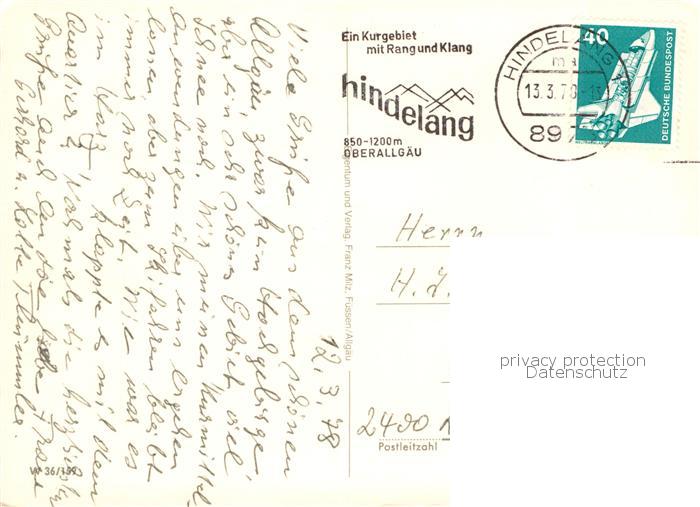 12.3.78
Viele Grüße aus dem schönen
Allgäu, zwar kein Harzgebirge,
aber ein sehr schönes Gebiet, viel
Schnee noch. Wir müssen Kurmittel-
Anwendungen über uns ergehen
lassen aber zum Skifahren bleibt
immer noch Zeit. Wie war es
im Harz? Klappte es mit dem
Quartier? Nochmals die herzlichsten
Grüße auch an die liebe Frau
Gerhard u. Lotte
Ein Kurgebiet
mit Rang und Klang
hindelang
850-1200m
OBERALLGÄU
HINDELANG 1
13.3.78-13
897
40
DEUTSCHE BUNDESPOST
Eigentum und Verlag Franz Milz, Füssen/Allgäu
Herrn
H. J.
2400
Postleitzahl
W 36/159
privacy protection
Datenschutz